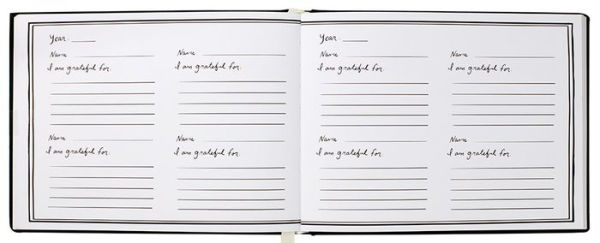 Year
Name
I am grateful for:
Name
I am grateful for:
Name
I am grateful for:
Name
I am grateful for:
Year
Name
I am grateful for:
Name
I am grateful for:
Name
I am grateful for:
Name
I am grateful for: